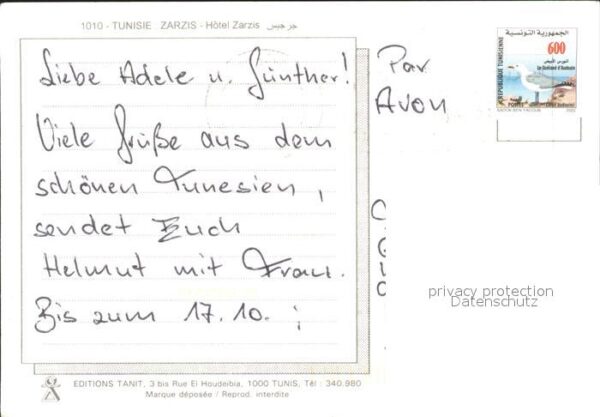 1010 - TUNISIE ZARZIS - Hôtel Zarzis جرجيس
Liebe Adele u. Günther!
Viele Grüße aus dem
schönen Tunesien,
sendet Euch
Helmut mit Frau.
Bis zum 17.10. !
Par
Avon
الجمهورية التونسية
600
REPUBLIQUE TUNISIENNE
Le Goéland d'Audouin
privacy protection
Datenschutz
EDITIONS TANIT, 3 bis Rue El Houdeibia, 1000 TUNIS, Tél : 340.980
Marque déposée / Reprod. interdite